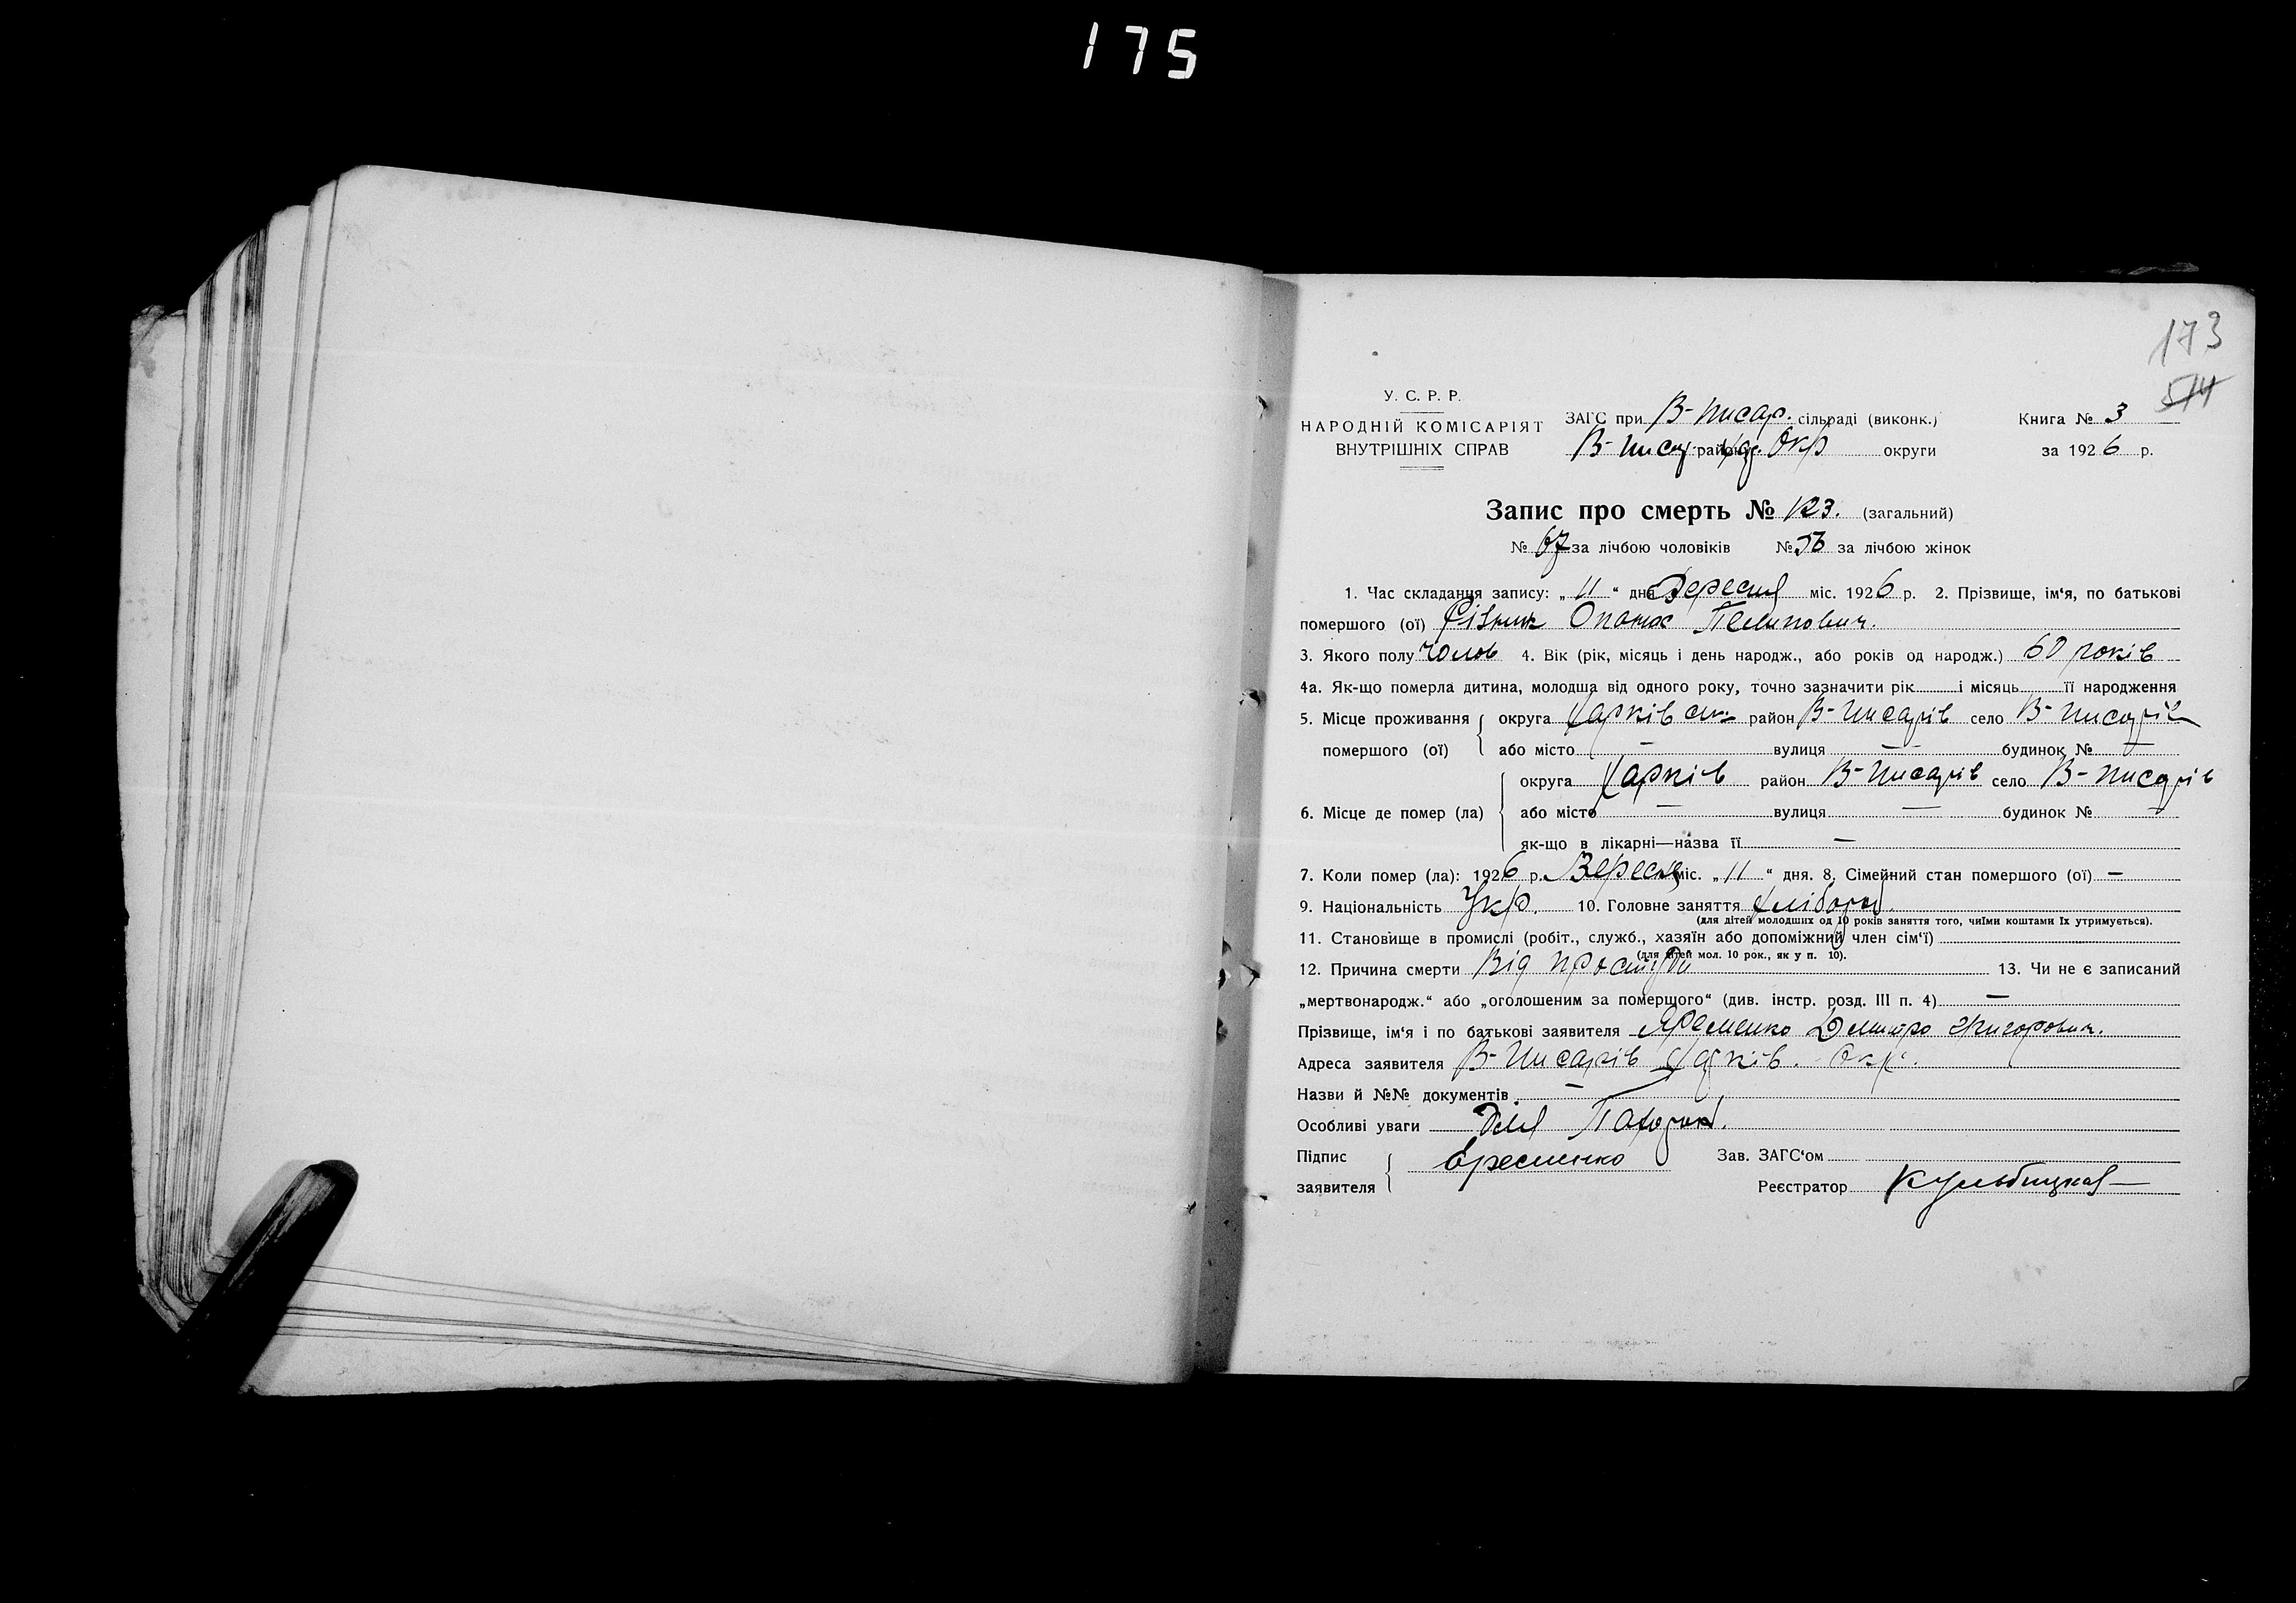 175
173
514
У. С. Р. Р.
НАРОДНІЙ КОМІСАРІЯТ
ВНУТРІШНІХ СПРАВ
ЗАГС при В-Писар. сільраді (виконк.)
В-Писар району Хар. Окр округи
Книга № 3
за 1926 р.
Запис про смерть № 123. (загальний)
№ 67 за лічбою чоловіків № 56 за лічбою жінок
1. Час складання запису: „ 11 “ дня Вересня міс. 1926 р. 2. Прізвище, ім‘я, по батькові
помершого (ої) Різник Опанас
3. Якого полу Чолов 4. Вік (рік, місяць і день народж., або років од народж.) 60 років
4а. Як-що померла дитина, молодша від одного року, точно зазначити рік і місяць її народження
5. Місце проживання помершого (ої) округа Харків район В-Писарів село В-Писарів
або місто — вулиця — будинок № —
6. Місце де помер (ла) округа Харків район В-Писарів село В-Писарів
або місто — вулиця — будинок № —
як-що в лікарні—назва її —
7. Коли помер (ла): 1926 р. Вересня міс. „ 11 “ дня. 8. Сімейний стан помершого (ої) —
9. Національність Укр. 10. Головне заняття хлібороб
(для дітей молодших од 10 років заняття того, чиїми коштами їх утримується).
11. Становище в промислі (робіт., служб., хазяїн або допоміжний член сім‘ї)
(для дітей мол. 10 рок., як у п. 10).
12. Причина смерти Від простуди 13. Чи не є записаний
„мертвонародж.“ або „оголошеним за помершого“ (див. інстр. розд. III п. 4) —
Прізвище, ім‘я і по батькові заявителя Яременко Дмитро Григорович.
Адреса заявителя В-Писарів Харків. Окр.
Назви й №№ документів —
Особливі уваги Для
Підпис заявителя Яременко
Зав. ЗАГС‘ом
Реєстратор Кульбицкая